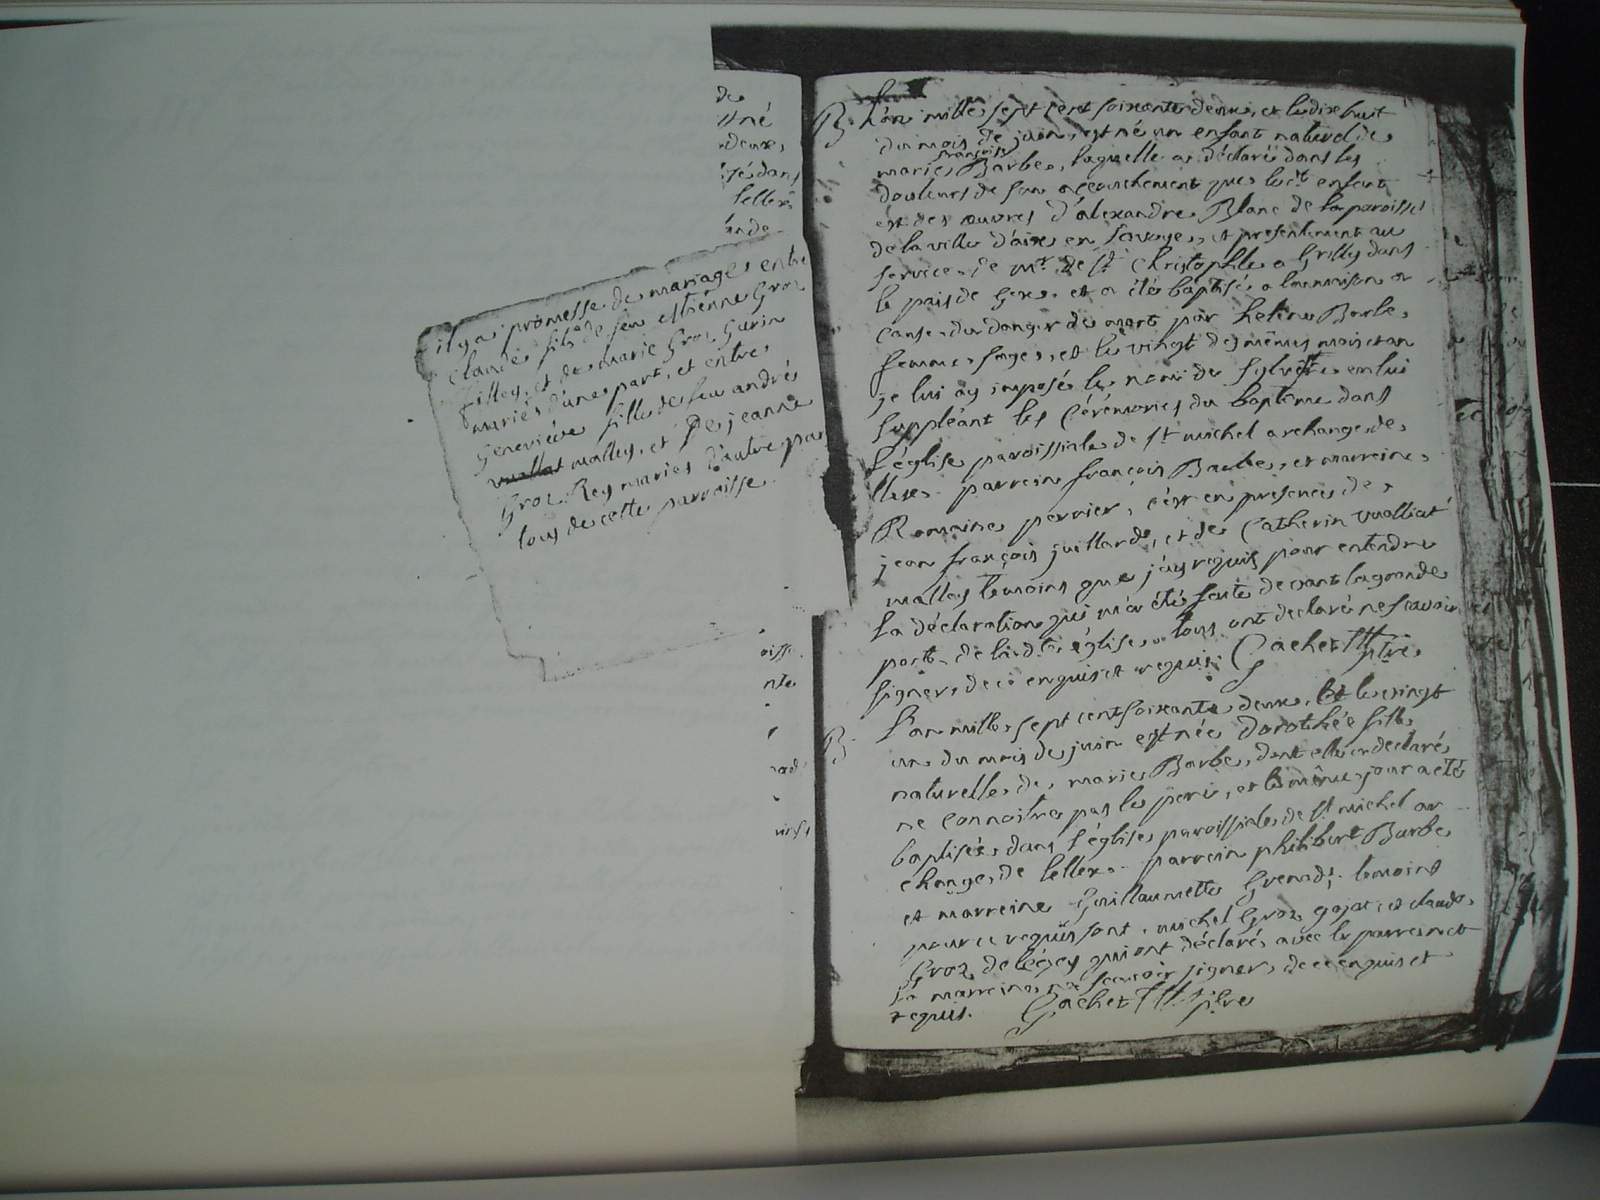 de
né
deux,
té dans
lellex
ande
il y a promesse de mariage entre
claude fils de feu estienne Groz
filley, et de marie Groz Gurin
mariés d'une part, et entre
Geneviève fille de feu andré
mallet, et de jeanne
Groz Rey mariés d'autre part
tous de cette parroisse
B. L'an mille sept cent soixante deux, et le dix huit
du mois de juin, est né un enfant naturel de
marie françoise Barbe, laquelle a déclaré dans les
douleurs de son accouchement que led.t enfant
est des œuvres d'alexandre Blanc de la paroisse
de la ville d'aix en Savoye, et presentement au
service de m.r de S.t Christophle a Grilly dans
le païs de Gex, et a été baptisé a la maison a
cause du danger de mort par helene Barbe,
femme sage, et le vingt des mêmes mois et an
je lui ay imposé le nom de Sylvestre en lui
suppléant les cérémonies du baptême dans
l'église paroissiale de st michel archange de
lellex. parrein françois Barbe, et marreine
Romaine perrier, c'est en presence de
jean françois juillard, et de Catherin vualliat
malley témoins que j'ay requis pour entendre
la déclaration qui m'a été faite devant la grande
porte de lad.te église. tous ont declaré ne scavoir
signer, de ce enquis et requis. Gachet ptre
B. L'an mille sept cent soixante deux, et le vingt
un du mois de juin est née dorothée fille
naturelle de marie Barbe, dont elle a declaré
ne connoitre pas le pere, et le même jour a été
baptisée dans l'église paroissiale de st michel ar
change de lellex. parrein philibert Barbe
et marreine Guillaumette Grend, témoins
pour ce requis sont michel Groz gojat, et claude
Groz de lézey qui ont déclaré avec le parrein et
la marreine ne scavoir signer, de ce enquis et
requis. Gachet ptre